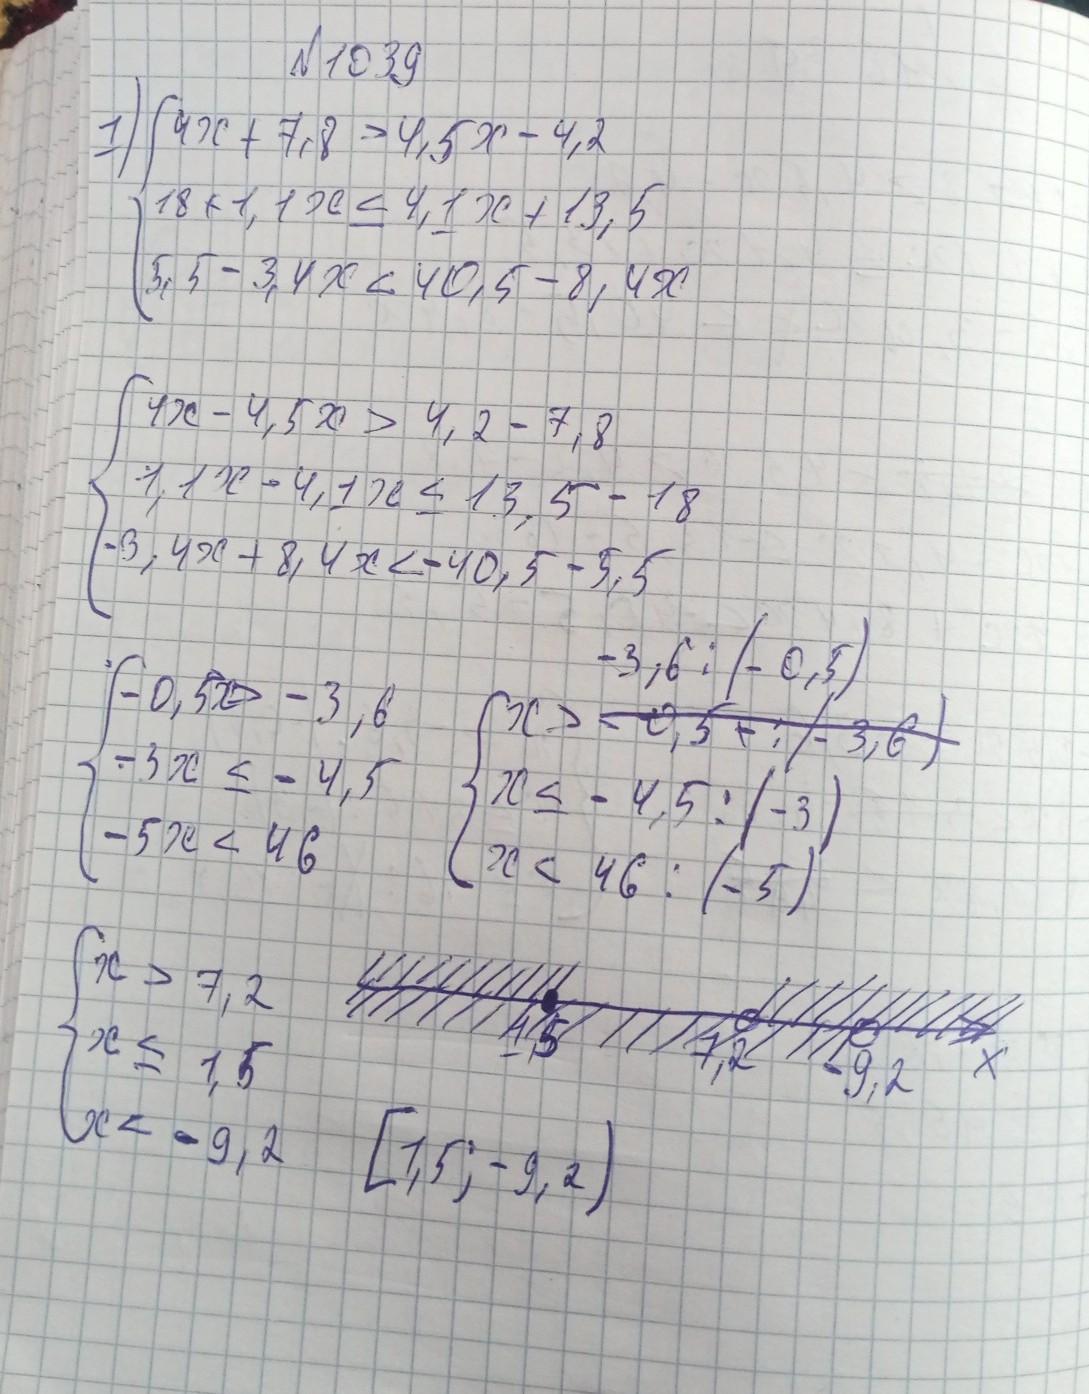 N1039
1) { 4x + 7,8 > 4,5x - 4,2
18 + 1,1x ≤ 4,1x + 13,5
5,5 - 3,4x < 40,5 - 8,4x
{ 4x - 4,5x > 4,2 - 7,8
1,1x - 4,1x ≤ 13,5 - 18
-3,4x + 8,4x < -40,5 - 5,5
{ -0,5x > -3,6
-3x ≤ -4,5
-5x < 46
-3,6 : (-0,5)
{ x >
x ≤ -4,5 : (-3)
x < 46 : (-5)
{ x > 7,2
x ≤ 1,5
x < -9,2
1,5 7,2 -9,2 x
[1,5; -9,2)